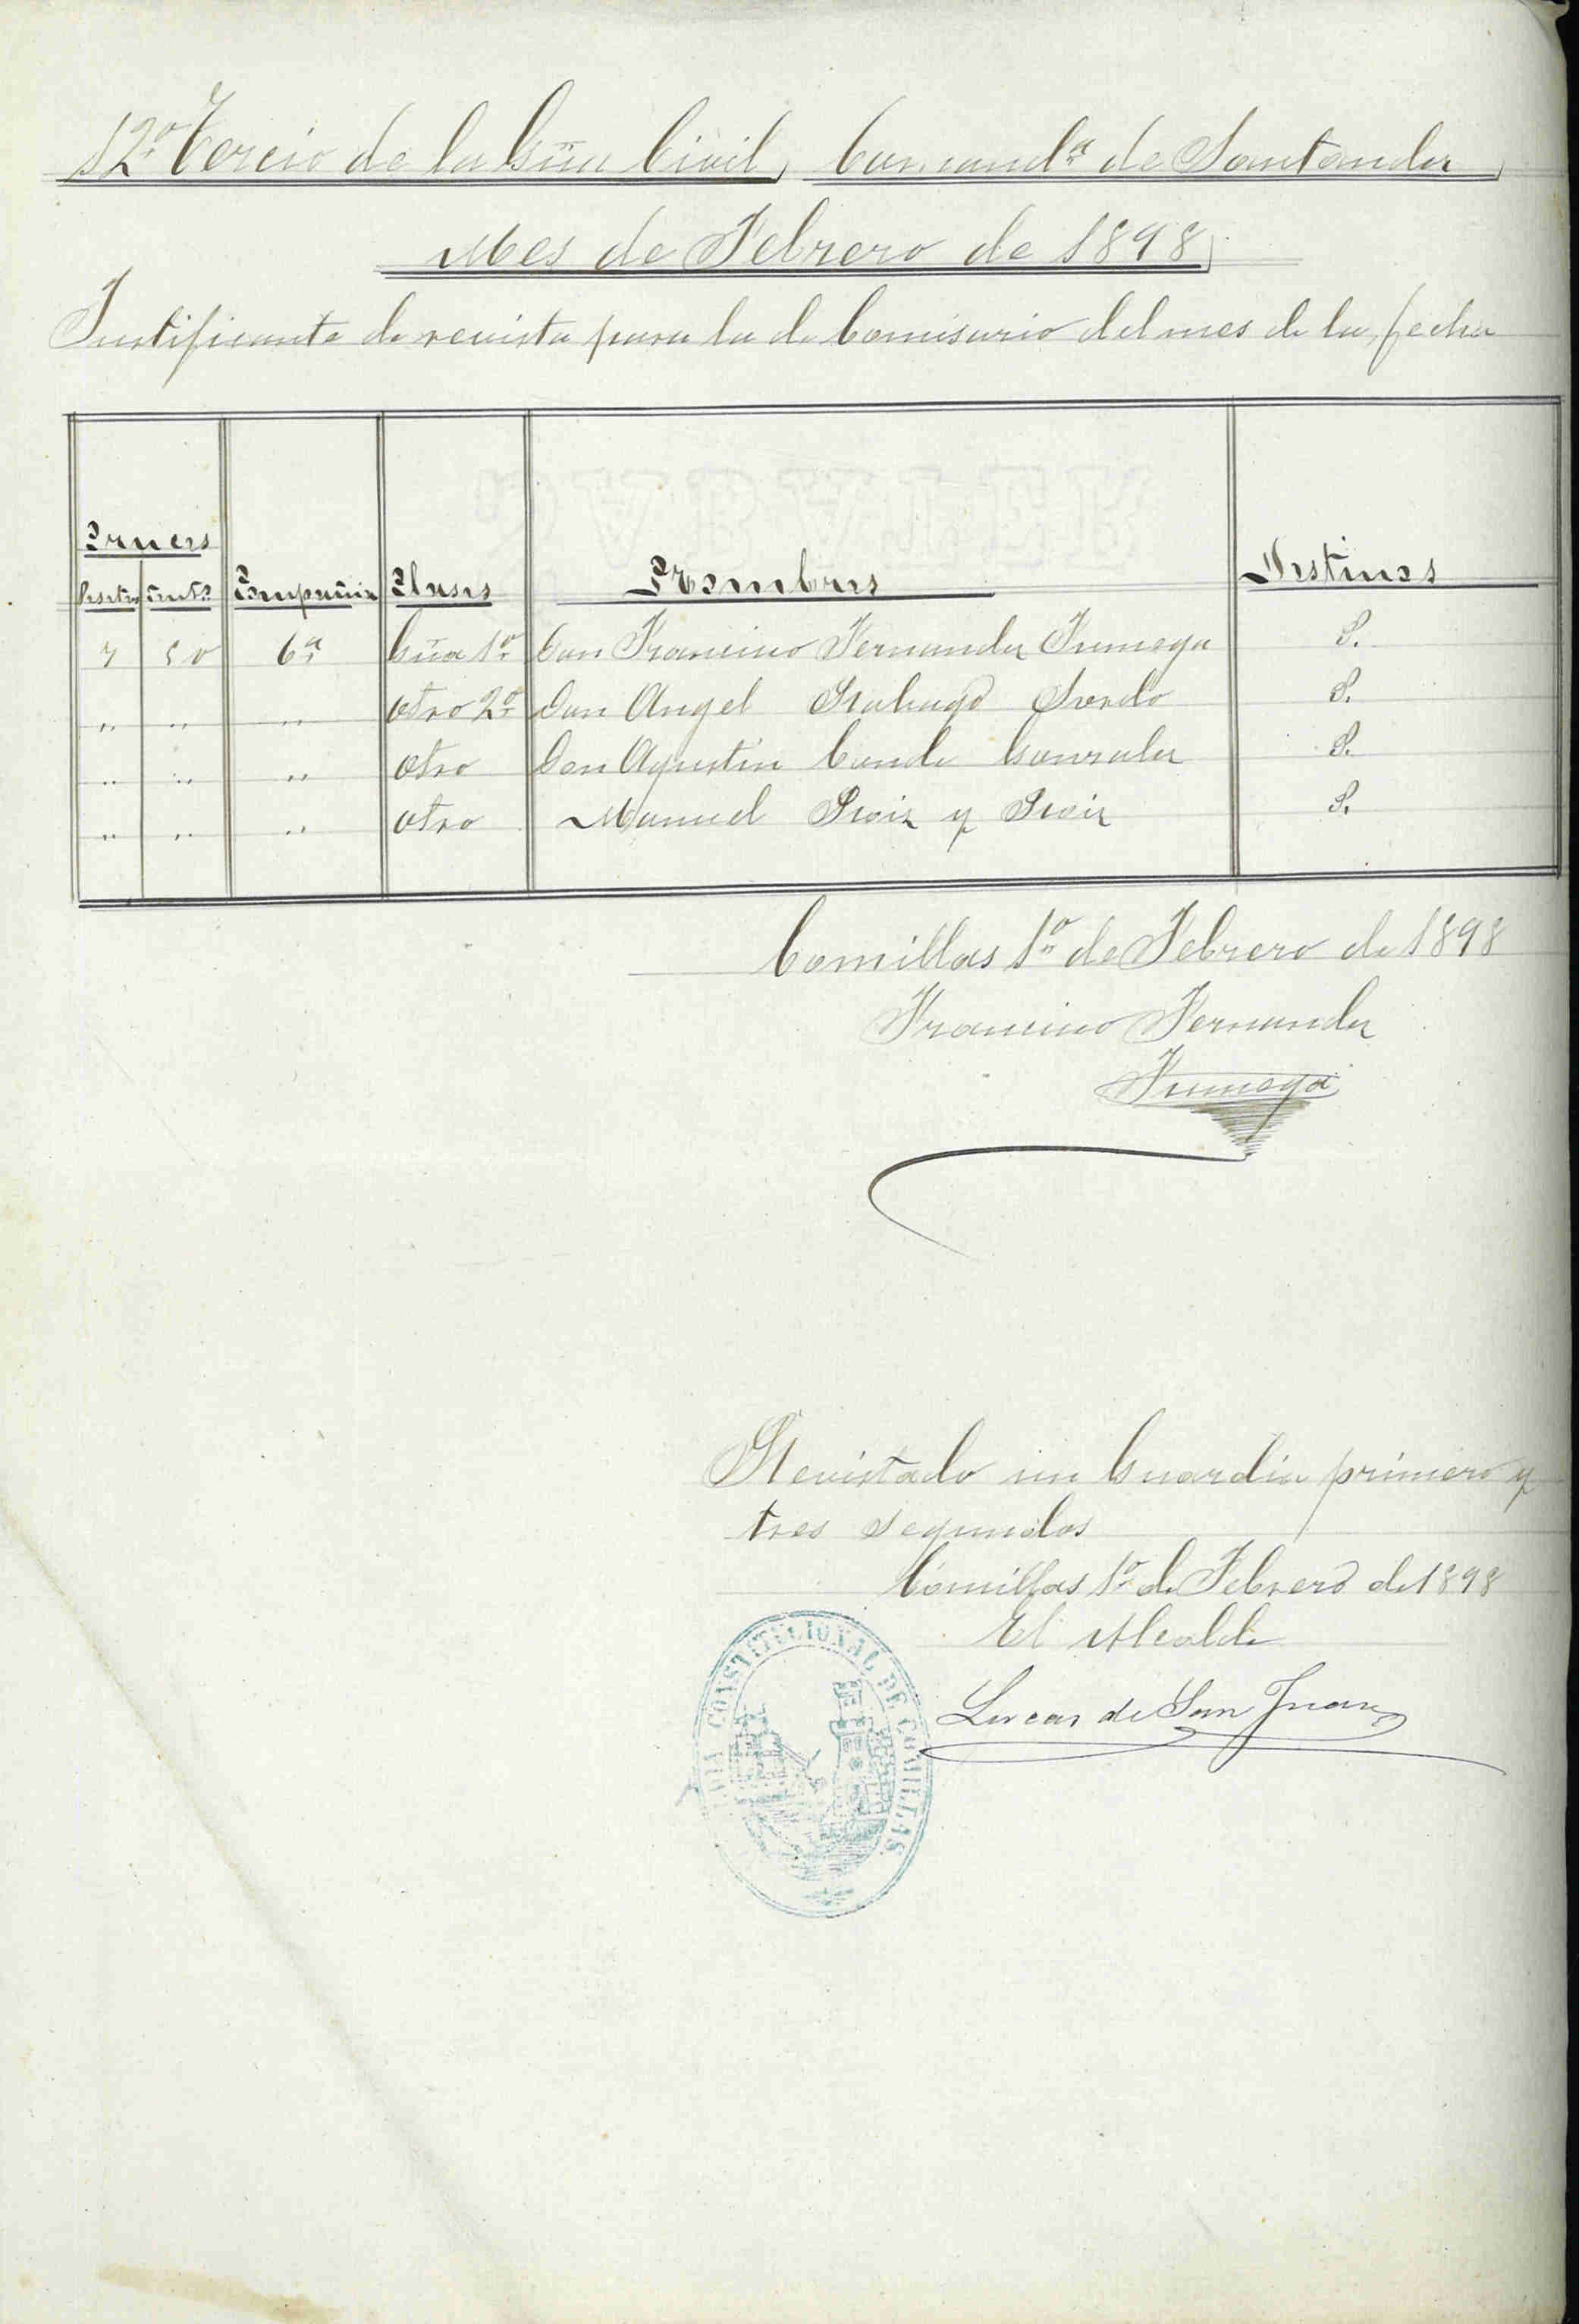 12º Tercio de la Gũa Civil, Comandª de Santander
Mes de Febrero de 1898
Justificante de revista para la de Comisario del mes de la fecha
Pesetas Cents Compañia Clases Nombres Destinos
7 50 6ª Gũa 1º Don Francisco Fernandez Fumega P.
" " " Otro 2º Don Angel Sordo P.
" " " Otro Don Agustin Conde Gonzalez P.
" " " Otro Manuel Ruiz y Ruiz P.
Comillas 1º de Febrero de 1898
Francisco Fernandez
Fumega
Revistado un Guardia primero y
tres segundos
Comillas 1º de Febrero de 1898
El Alcalde
Lucas de San Juan
CONSTITUCIONAL DE COMILLAS